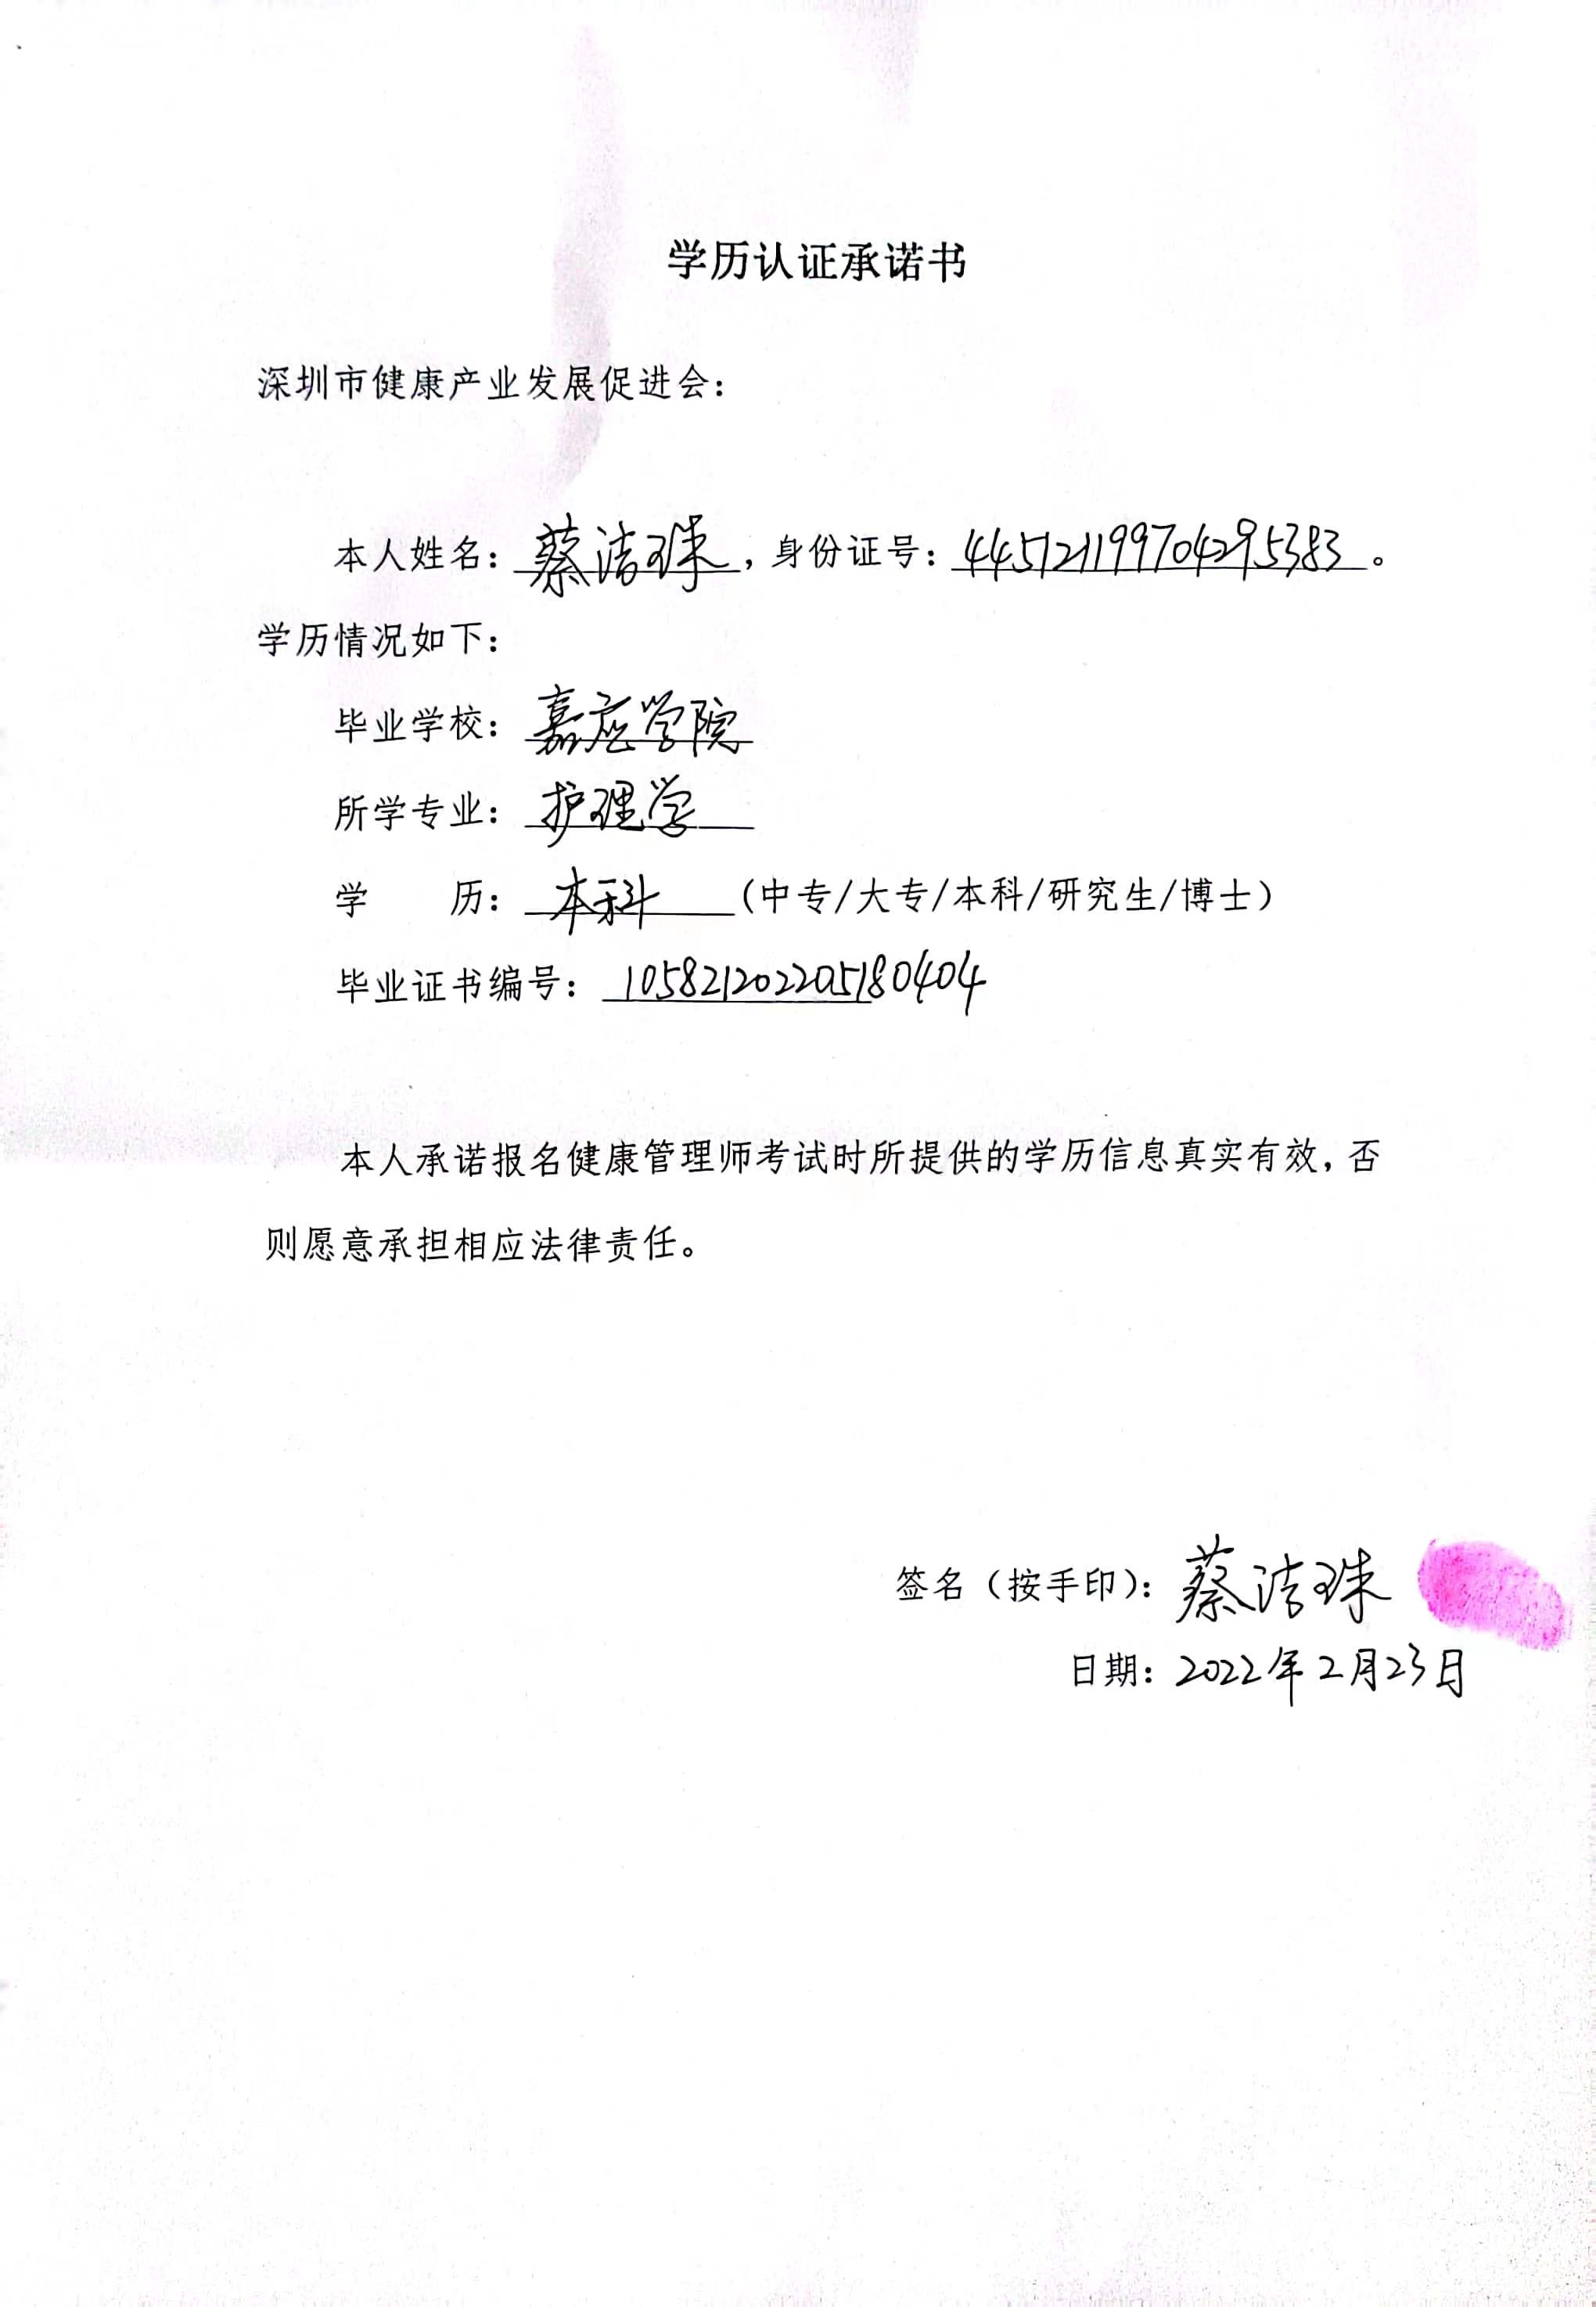 学历认证承诺书
深圳市健康产业发展促进会：
本人姓名：蔡洁珠，身份证号：445121199704295383。
学历情况如下：
毕业学校：嘉应学院
所学专业：护理学
学 历：本科（中专/大专/本科/研究生/博士）
毕业证书编号：105821202205180404
本人承诺报名健康管理师考试时所提供的学历信息真实有效，否
则愿意承担相应法律责任。
签名（按手印）：蔡洁珠
日期：2022年2月23日